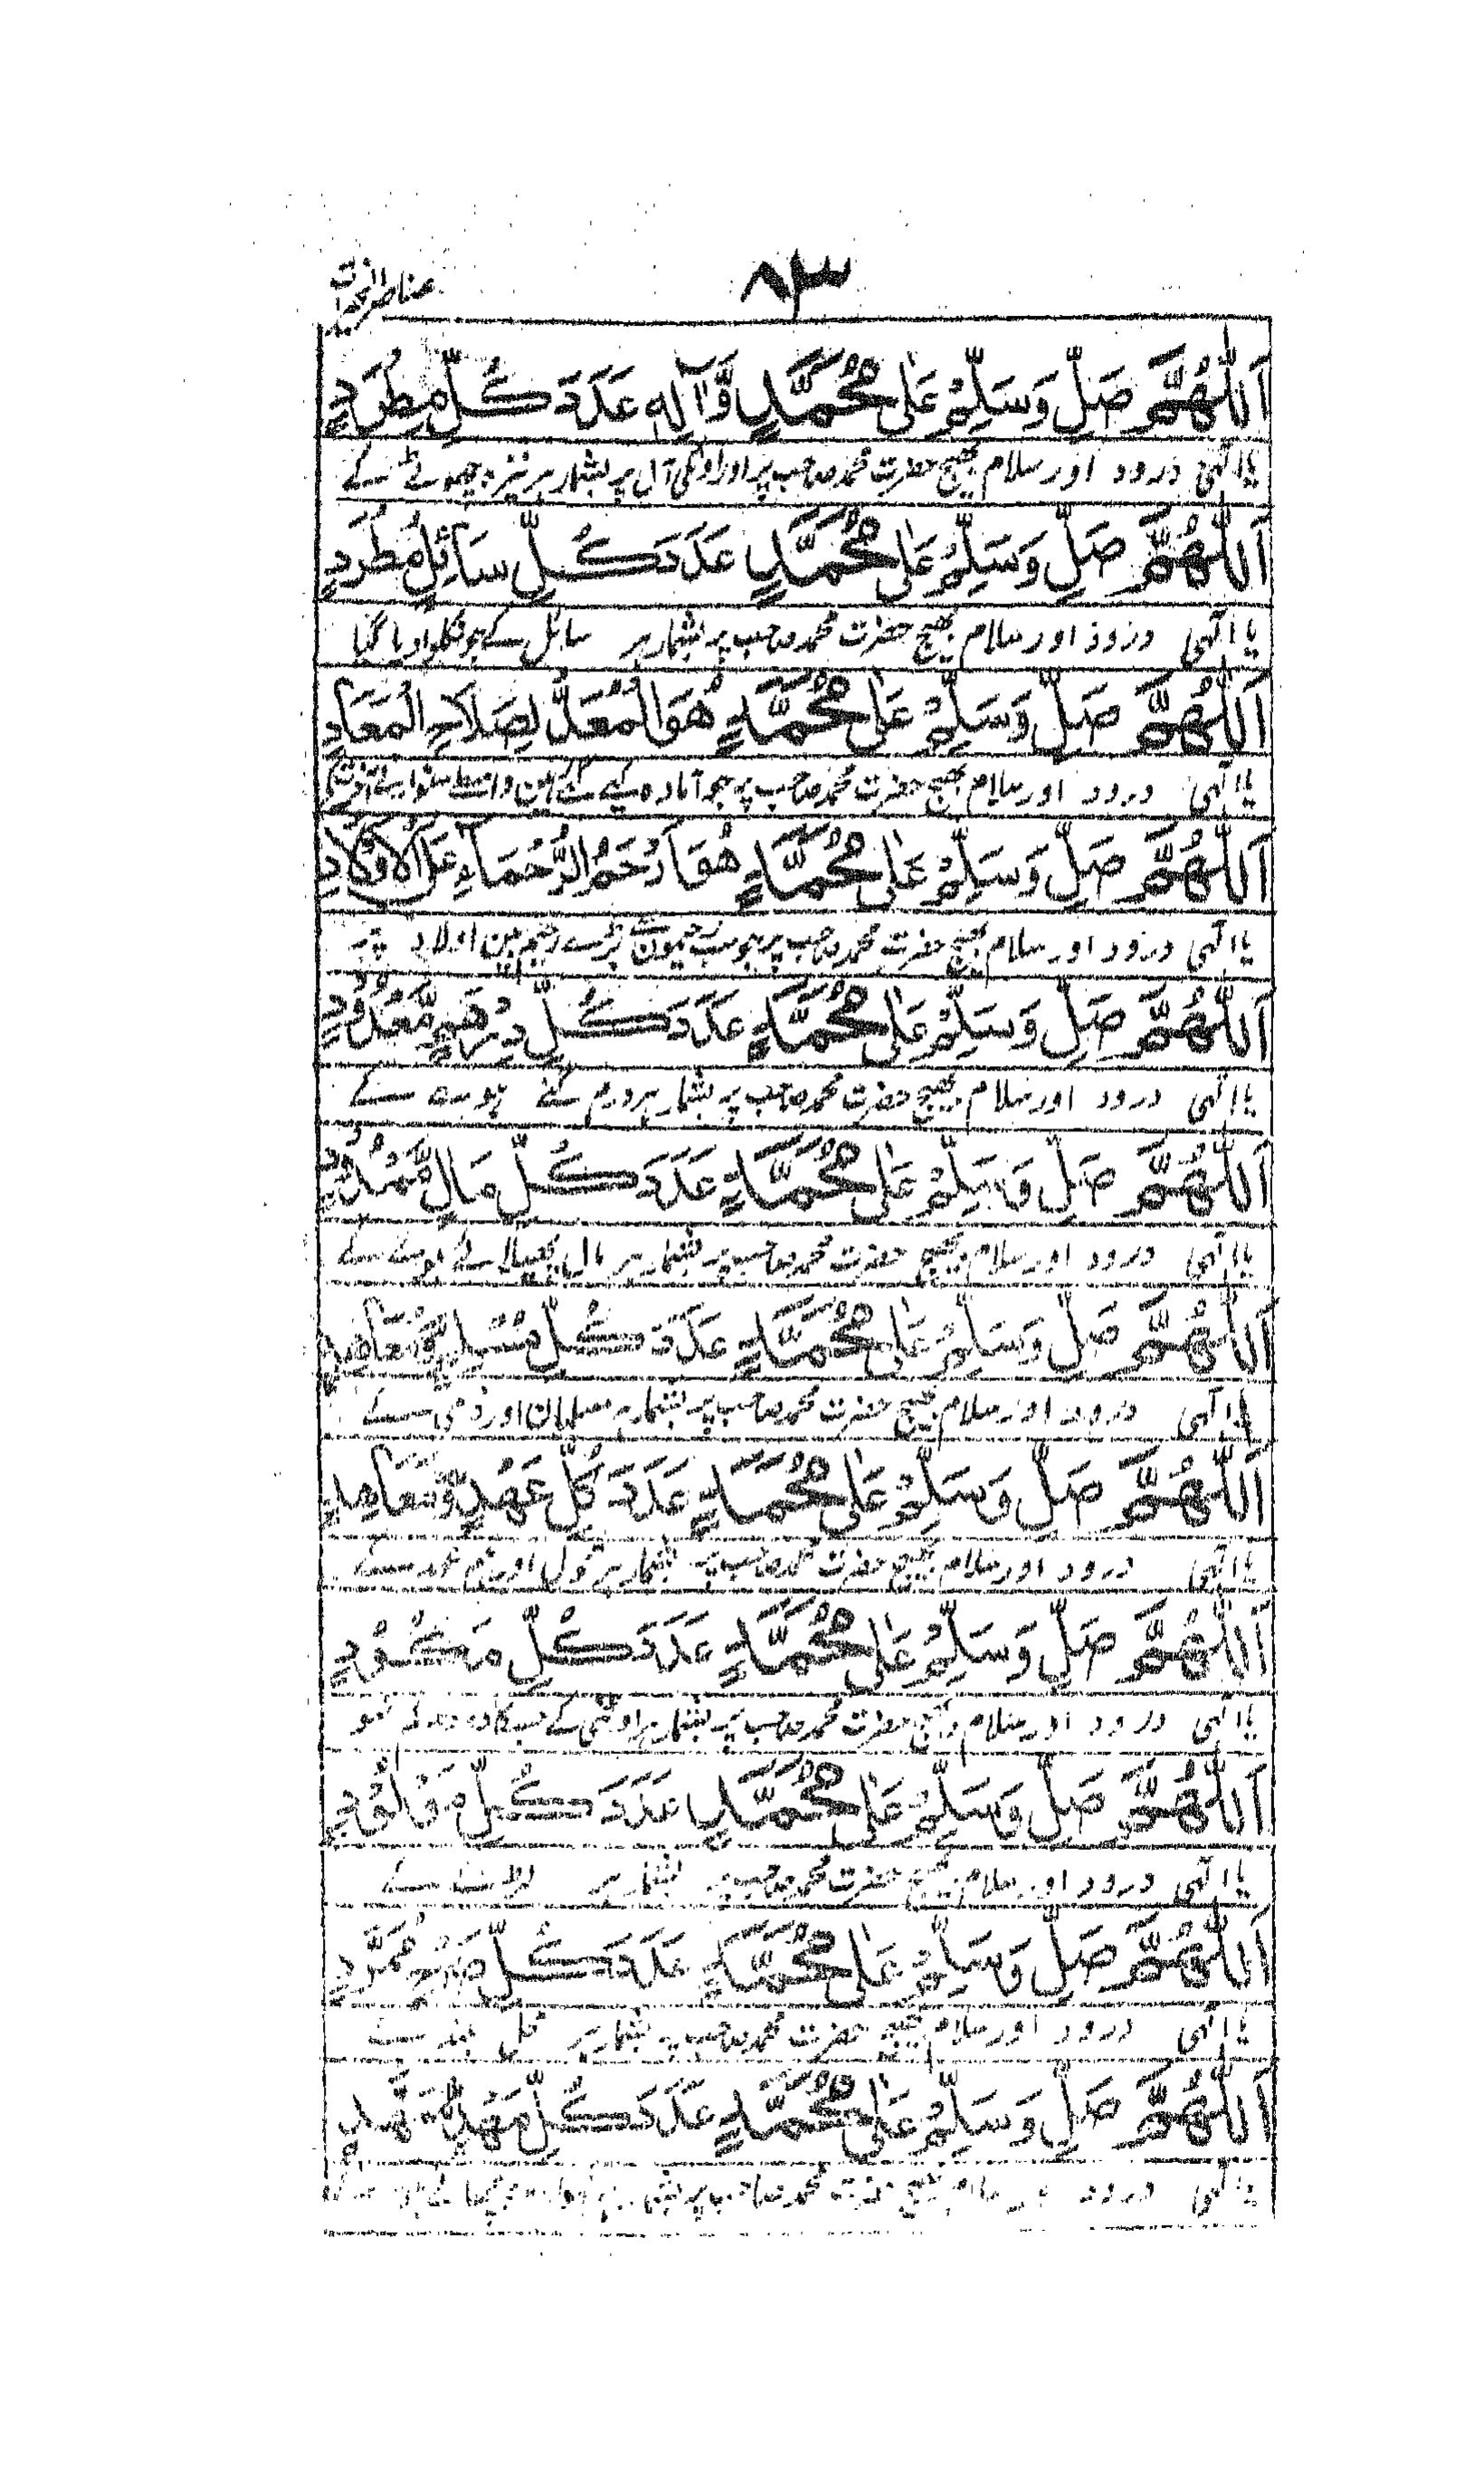 ۸۳
عناصر الخیرات
اَللّٰهُمَّ صَلِّ وَسَلِّمْ عَلٰى مُحَمَّدٍ وَّاٰلِهٖ عَدَدَ كُلِّ مِطْرَدٍ
یا الٰہی درود اور سلام بھیج حضرت محمد صاحب پر اور اونکی آل پر بشمار ہر نیزہ چھوٹے کے
اَللّٰهُمَّ صَلِّ وَسَلِّمْ عَلٰى مُحَمَّدٍ عَدَدَ كُلِّ سَآئِلٍ مُطْرَدٍ
یا الٰہی درود اور سلام بھیج حضرت محمد صاحب پر بشمار ہر سائل کے جو نکلوا دیا گیا
اَللّٰهُمَّ صَلِّ وَسَلِّمْ عَلٰى مُحَمَّدٍ هُوَ الْمُعَدُّ لِصَلَاحِ الْمَعَادِ
یا الٰہی درود اور سلام بھیج حضرت محمد صاحب پر جو آمادہ کیے گئے ہین واسطے سنوارنے
اَللّٰهُمَّ صَلِّ وَسَلِّمْ عَلٰى مُحَمَّدٍ هُوَ اَرْحَمُ الرُّحَمَآءِ عَلَى الْاَوْلَادِ
یا الٰہی درود اور سلام بھیج حضرت محمد صاحب پر جو سب رحیمون سے بڑے رحیم ہین اولاد پر
اَللّٰهُمَّ صَلِّ وَسَلِّمْ عَلٰى مُحَمَّدٍ عَدَدَ كُلِّ دِرْهَمٍ مَّعْدُوْدٍ
یا الٰہی درود اور سلام بھیج حضرت محمد صاحب پر بشمار ہر درم گنے ہوے کے
اَللّٰهُمَّ صَلِّ وَسَلِّمْ عَلٰى مُحَمَّدٍ عَدَدَ كُلِّ مَالٍ مَّمْدُوْدٍ
یا الٰہی درود اور سلام بھیج حضرت محمد صاحب پر بشمار ہر مال پھیلائے ہوئے کے
اَللّٰهُمَّ صَلِّ وَسَلِّمْ عَلٰى مُحَمَّدٍ عَدَدَ كُلِّ مُسْلِمٍ وَّمُعَاهِدٍ
یا الٰہی درود اور سلام بھیج حضرت محمد صاحب پر بشمار ہر مسلمان اور ذمی کے
اَللّٰهُمَّ صَلِّ وَسَلِّمْ عَلٰى مُحَمَّدٍ عَدَدَ كُلِّ عَهْدٍ وَّمُعَاهِدٍ
یا الٰہی درود اور سلام بھیج حضرت محمد صاحب پر بشمار ہر قول اور ہم عہد کے
اَللّٰهُمَّ صَلِّ وَسَلِّمْ عَلٰى مُحَمَّدٍ عَدَدَ كُلِّ مَكُوْدٍ
یا الٰہی درود اور سلام بھیج حضرت محمد صاحب پر بشمار ہر اونٹنی کے جسکا دودھ کم ہو
اَللّٰهُمَّ صَلِّ وَسَلِّمْ عَلٰى مُحَمَّدٍ عَدَدَ كُلِّ مَوْلُوْدٍ
یا الٰہی درود اور سلام بھیج حضرت محمد صاحب پر بشمار ہر کے
اَللّٰهُمَّ صَلِّ وَسَلِّمْ عَلٰى مُحَمَّدٍ عَدَدَ كُلِّ صَرْحٍ مُّمَرَّدٍ
یا الٰہی درود اور سلام بھیج حضرت محمد صاحب پر بشمار ہر محل بلند کے
اَللّٰهُمَّ صَلِّ وَسَلِّمْ عَلٰى مُحَمَّدٍ عَدَدَ كُلِّ مَهْدٍ
یا الٰہی درود بھیج حضرت محمد صاحب پر